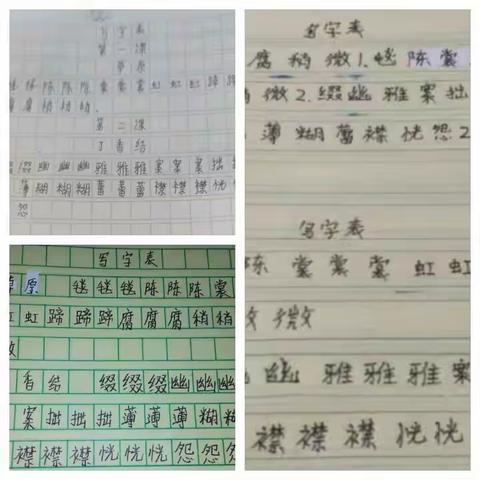 写字表
第一课
草原
毯 陈 陈 陈 裳 裳 裳 虹 虹 虹 蹄 蹄
腐 腐 稍 稍
第二课
丁香结
缀 幽 幽 幽 雅 雅 雅 案 案 案 拙 拙
薄 糊 糊 糊 蕾 蕾 蕾 襟 襟 襟 恍
怨
写字表
原 毯 毯 毯 陈 陈 陈 裳
虹 虹 蹄 蹄 蹄 腐 腐 腐 稍 稍
微
香结 缀 缀 缀 幽 幽 幽
案 拙 拙 拙 薄 薄 薄 糊 糊
襟 襟 襟 恍 恍 恍 怨 怨 怨
写字表
腐 稍 微 1.毯 陈 裳
微 2.缀 幽 雅 案 拙
薄 糊 蕾 襟 恍 怨 2
写字表
陈 裳 裳 裳 虹 虹
微 微
幽 雅 雅 雅 案
襟 襟 襟 恍 恍